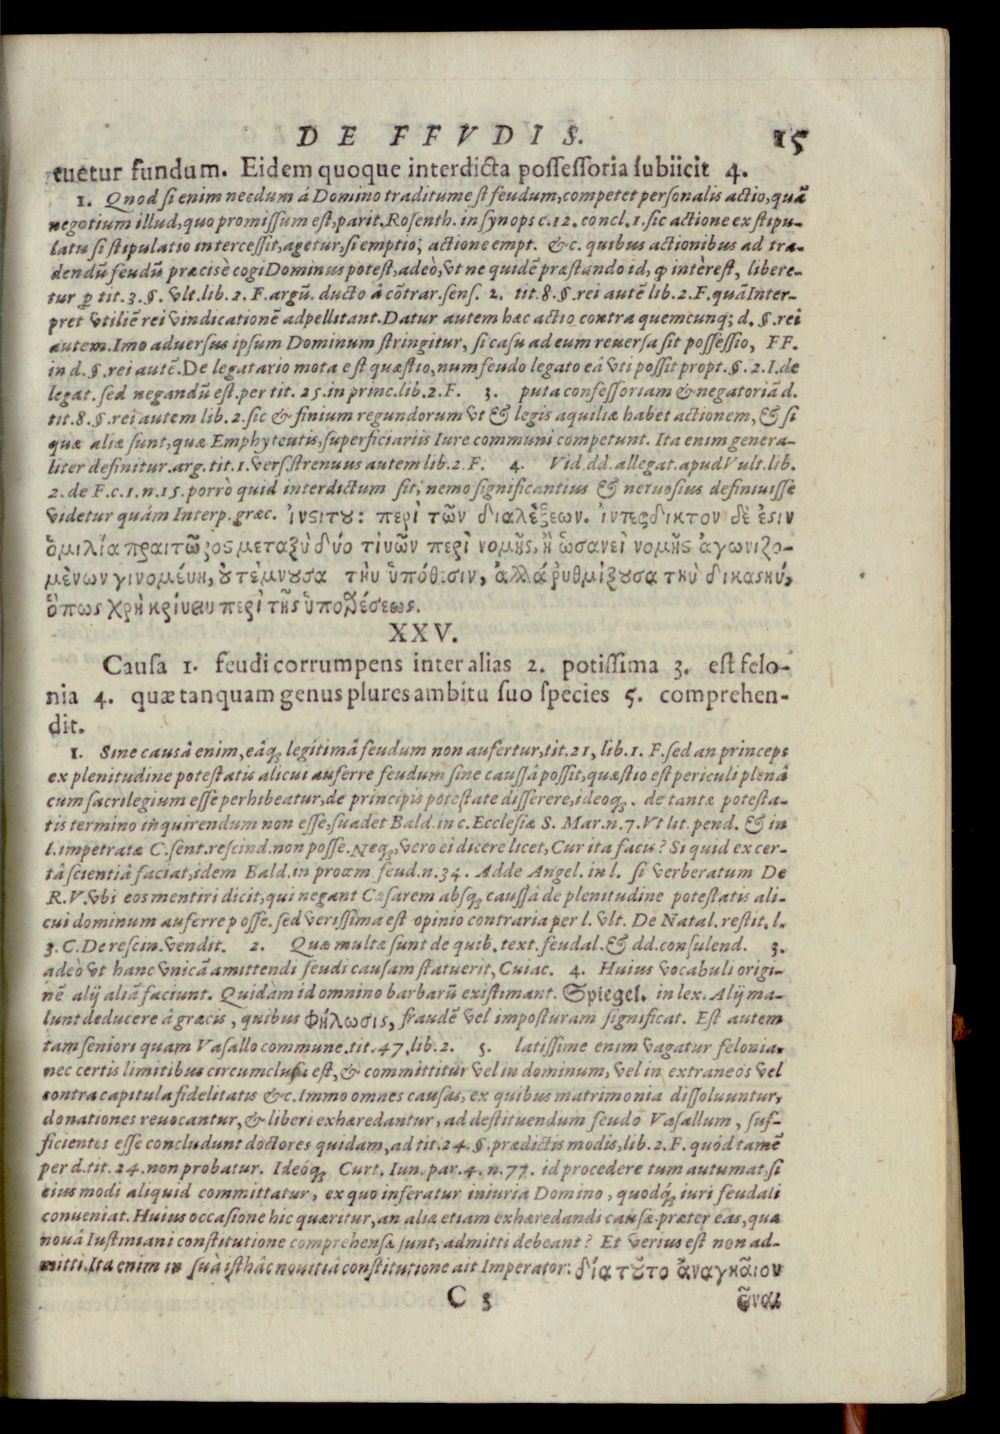 DE FFVDIS. 15
tuetur fundum. Eidem quoque interdicta possessoria subiicit 4.
1. Quod si enim necdum á Domino traditum est feudum, competet personalis actio, quã
negotium illud, quo promissum est, parit. Rosenth. in synops c. 12. concl. 1. sic actione ex stipu-
latu si stipulatio intercessit, agetur, si emptio; actione empt. &c. quibus actionibus ad tra-
dendũ feudũ præcisè cogi Dominus potest, adeò, vt ne quidẽ præstando id, ꝙ intèrest, libere-
tur ꝑ tit. 3. §. vlt. lib. 2. F. argũ. ducto â cõtrar. sens. 2. tit. 8. §. rei autẽ lib. 2. F. quã Inter-
pret vtilẽ rei vindicationẽ adpellitant. Datur autem hæc actio contra quemcunq; d. §. rei
autem. Imo aduersus ipsum Dominum stringitur, si casu ad eum reuersa sit possessio, FF.
in d. §. rei autẽ. De legatario mota est quæstio, num feudo legato eâ vti possit propt. §. 2. I. de
legat. sed negandũ est. per tit. 25. in princ. lib. 2. F. 3. puta confessoriam & negatoriã d.
tit. 8. §. rei autem lib. 2. sic & finium regundorum vt & legis aquiliæ habet actionem, & si
quæ aliæ sunt, quæ Emphyteutis, superficiariis Iure communi competunt. Ita enim genera-
liter definitur. arg. tit. 1. vers. strenuus autem lib. 2. F. 4. Vid. dd. allegat. apud Vult. lib.
2. de F. c. 1. n. 15. porrò quid interdictum sit, nemo significantius & neruosius definiuisse
videtur quám Interp. græc. ἰνςιτȣ: περὶ τῶν διαλὲξεων. ἰντερδικτον δὲ ἐςιν
ὁμιλία πραιτῶρος μεταξὺ δύο τινῶν περὶ νομῆς, ἢ ὡσανεὶ νομῆς ἀγωνιζο-
μὲνων γινομένη, ȣ̓ τὲμνȣσα τὴν ὑπόθεσιν, ἀλλά ῥυθμίζȣσα τὴν δικαςὴν,
ὅπως χρὴ κρίναι περὶ τῆς ὑποθέσεως.
XXV.
Causa 1. feudi corrumpens inter alias 2. potissima 3. est felo-
nia 4. quæ tanquam genus plures ambitu suo species 5. comprehen-
dit.
1. Sine causâ enim, eâq; legitimâ feudum non aufertur, tit. 21, lib. 1. F. sed an princeps
ex plenitudine potestatis alicui auferre feudum sine caussâ possit, quæstio est periculi plenâ
cum sacrilegium esse perhibeatur, de principis potestate disserere, ideoq;. de tantæ potesta-
tis termino inquirendum non esse, suadet Bald. in c. Ecclesiæ S. Mar. n. 7. Vt lit. pend. & in
l. impetratæ C. sent. rescind. non posse. Neq; vero ei dicere licet, Cur ita facis? Si quid ex cer-
tâ scientiâ faciat, idem Bald. in proœm feud. n. 34. Adde Angel. in l. si verberatum De
R. V. vbi eos mentiri dicit, qui negant Cæsarem absq; caussâ de plenitudine potestatis ali-
cui dominum auferre posse. sed verissima est opinio contraria per l. vlt. De Natal. restit. l.
3. C. De rescin. vendit. 2. Quæ multæ sunt de quib. text. feudal. & dd. consulend. 3.
adeò vt hanc vnicã amittendi feudi causam statuerit, Cuiac. 4. Huius vocabuli origi-
nẽ alij aliã faciunt. Quidàm id omnino barbarũ existimant. Spiegel. in lex. Alij ma-
lunt deducere â græcis, quibus Φήλωσις, fraudẽ vel imposturam significat. Est autem
tam seniori quam Vasallo commune. tit. 47. lib. 2. 5. latissime enim vagatur felonia.
nec certis limitibus circumclusa est, & committitur vel in dominum, vel in extraneos vel
contra capitula fidelitatis &c. Immo omnes causas, ex quibus matrimonia dissoluuntur,
donationes reuocantur, & liberi exhæredantur, ad destituendum feudo Vasallum, suf-
ficientes esse concludunt doctores quidam, ad tit. 24. §. prædictis modis, lib. 2. F. quód tamẽ
per d. tit. 24. non probatur. Ideóq; Curt. Iun. par. 4. n. 77. id procedere tum autumat, si
eius modi aliquid committatur, ex quo inferatur iniuria Domino, quodq́; iuri feudali
conueniat. Huius occasione hic quæritur, an aliæ etiam exhæredandi causæ præter eas, quæ
nouâ Iustiniani constitutione comprehensæ sunt, admitti debeant? Et verius est non ad-
mitti. Ita enim in suâ isthâc nouitiâ constitutione ait Imperator: διὰ τȣ͂το ἀναγκᾶιον
C 3 εἶναι